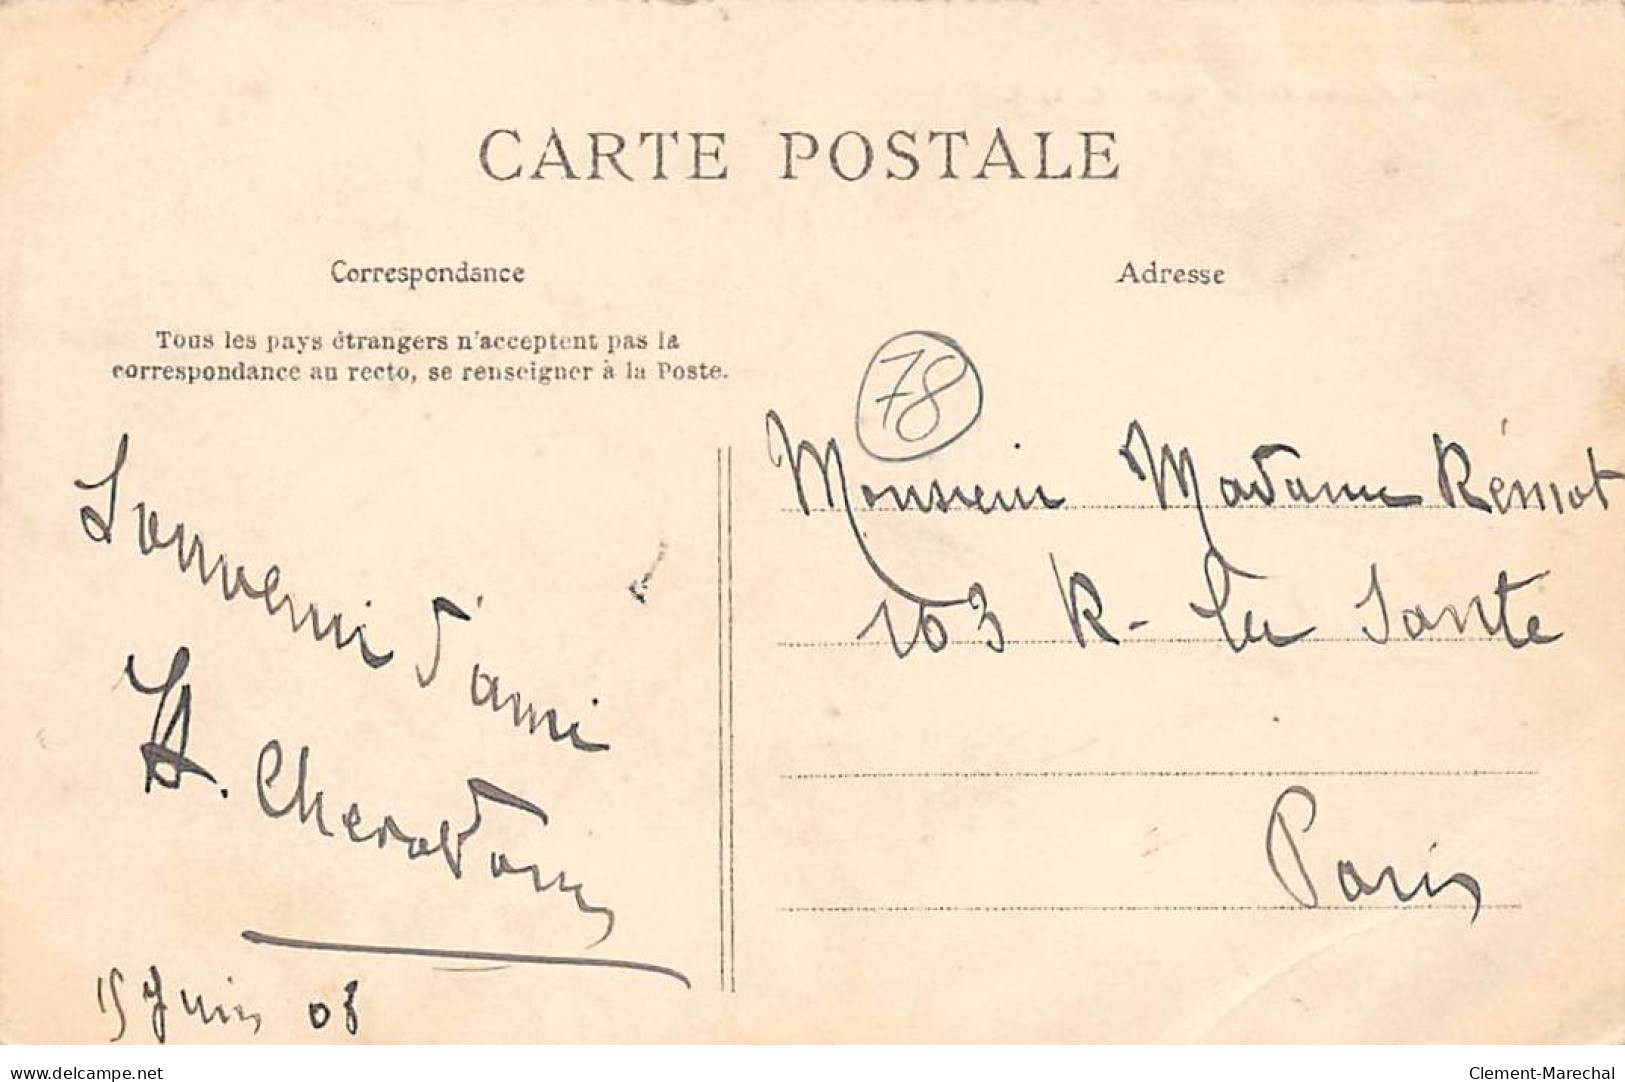 CARTE POSTALE
Correspondance
Tous les pays étrangers n'acceptent pas la
correspondance au recto, se renseigner à la Poste.
Souvenir d'ami
15 Juin 08
Adresse
78
Monsieur Madame Rémot
103 R- La Santé
Paris
delcampe.net
Clement-Marechal